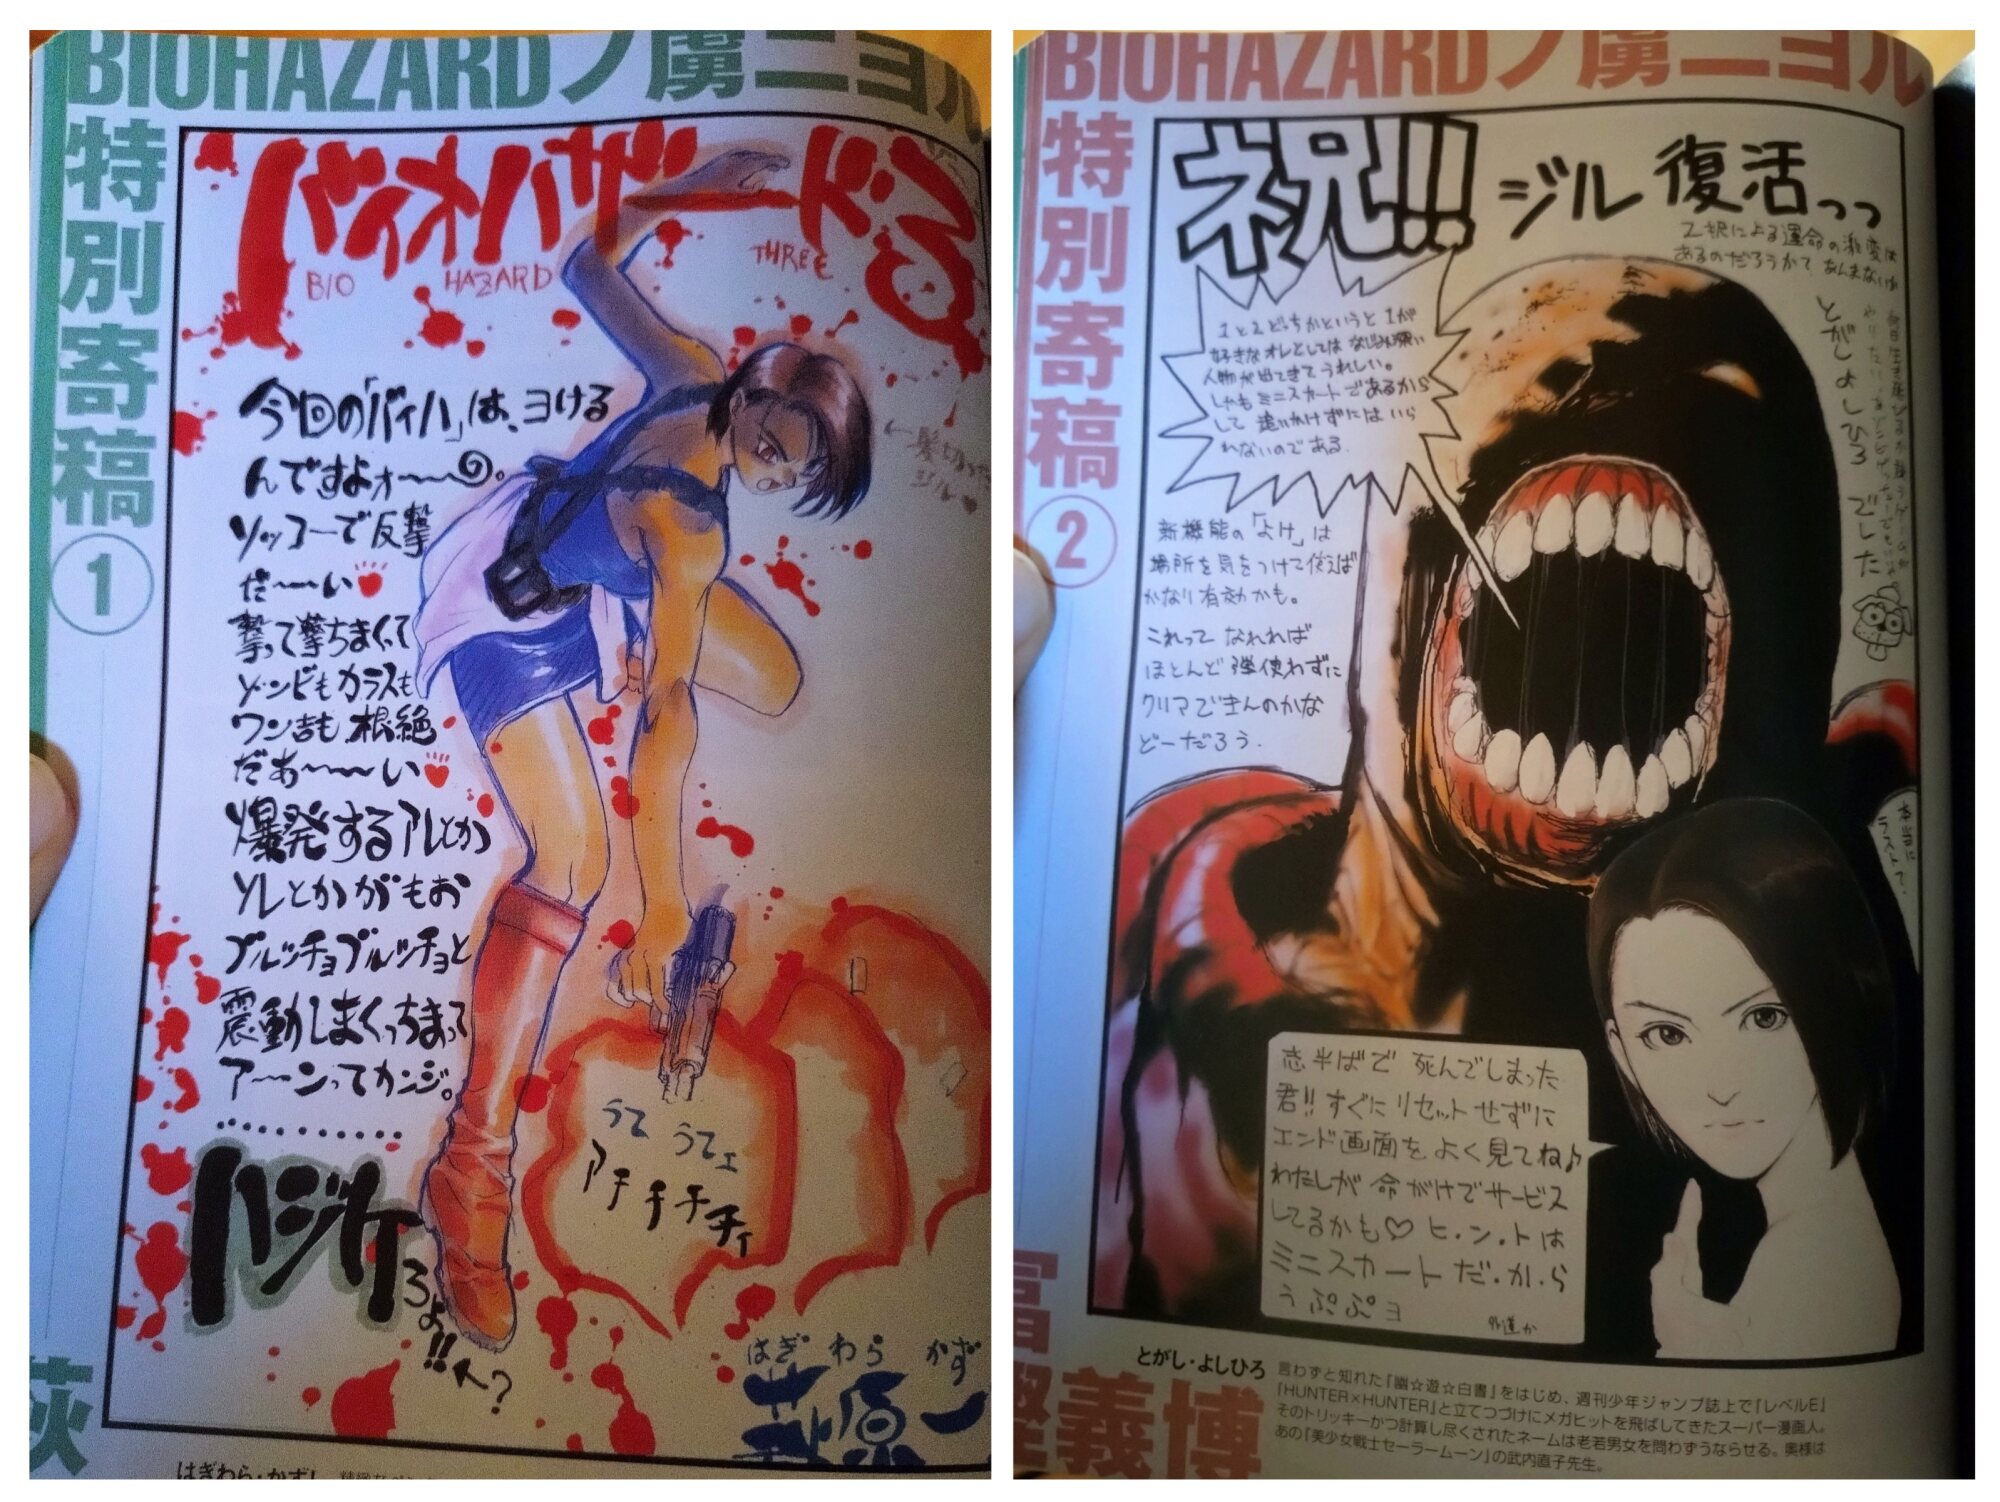 BIOHAZARDノ虜ニヨル
特別寄稿
1
バイオハザード3
BIO HAZARD THREE
今回の「バイハ」は、ヨける
んですよォ〜〜の。
ソッコーで反撃
だ〜〜い
撃って撃ちまくって
ゾンビもカラスも
ワン吉も根絶
だあ〜〜〜い
爆発するアレとか
ソレとかがもお
ブルッチョブルッチョと
震動しまくっちまって
ア〜〜ンってカンジ。
…………
ハジケ
ろよ!!
↑?
←髪切った
ジル
うて うてェ
アチチチチィ
はぎわら かず
萩原一
萩
はぎわら・かずし
BIOHAZARDノ虜ニヨル
特別寄稿
2
祝!!
ジル 復活っっ
2択による運命の激変は
あるのだろうかて あんまないか
とがしよしひろ でした
1と2どっちかというと1が
好きなオレとしては なじみ深い
人物が出てきてうれしい。
しかもミニスカートであるから
して 追いかけずにはいら
れないのである.
新機能の「よけ」は
場所を気をつけて使えば
かなり有効かも。
これって なれれば
ほとんど弾使わずに
クリアできんのかな
どーだろう.
本当に
ラスト?
志半ばで 死んでしまった
君!! すぐにリセットせずに
エンド画面をよく見てね♪
わたしが 命がけでサービス
してるかも♡ ヒ・ン・トは
ミニスカートだ・か・ら
うぷぷョ
外道か
冨樫義博
とがし・よしひろ
言わずと知れた『幽☆遊☆白書』をはじめ、週刊少年ジャンプ誌上で『レベルE』
『HUNTER×HUNTER』と立てつづけにメガヒットを飛ばしてきたスーパー漫画人。
そのトリッキーかつ計算し尽くされたネームは老若男女を問わずうならせる。奥様は
あの『美少女戦士セーラームーン』の武内直子先生。